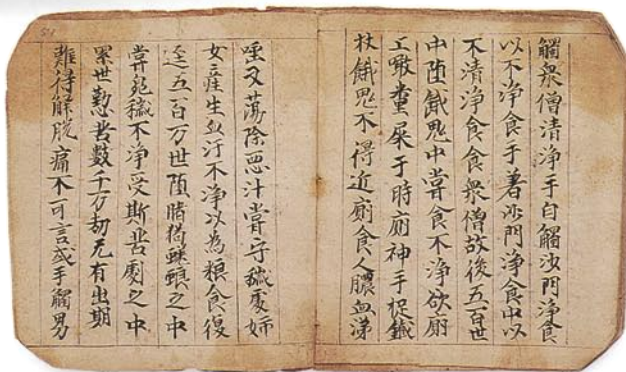 觸衆僧清淨手自觸沙門淨食
以不淨食手著沙門淨食中以
不清淨食食衆僧故後五百世
中堕餓鬼中常食不淨欲廁
上噉糞屎于時廁神手捉鐵
杖餓鬼不得近廁食人膿血涕
唾又蕩除惡汁常守穢處婦
女產生血汙不淨以為粮食復
逕五百万世堕猪狗蜣蜋之中
常穢不淨受斯苦劇之中
累世懃苦數千万劫无有出期
難得解脫痛不可言或手觸男